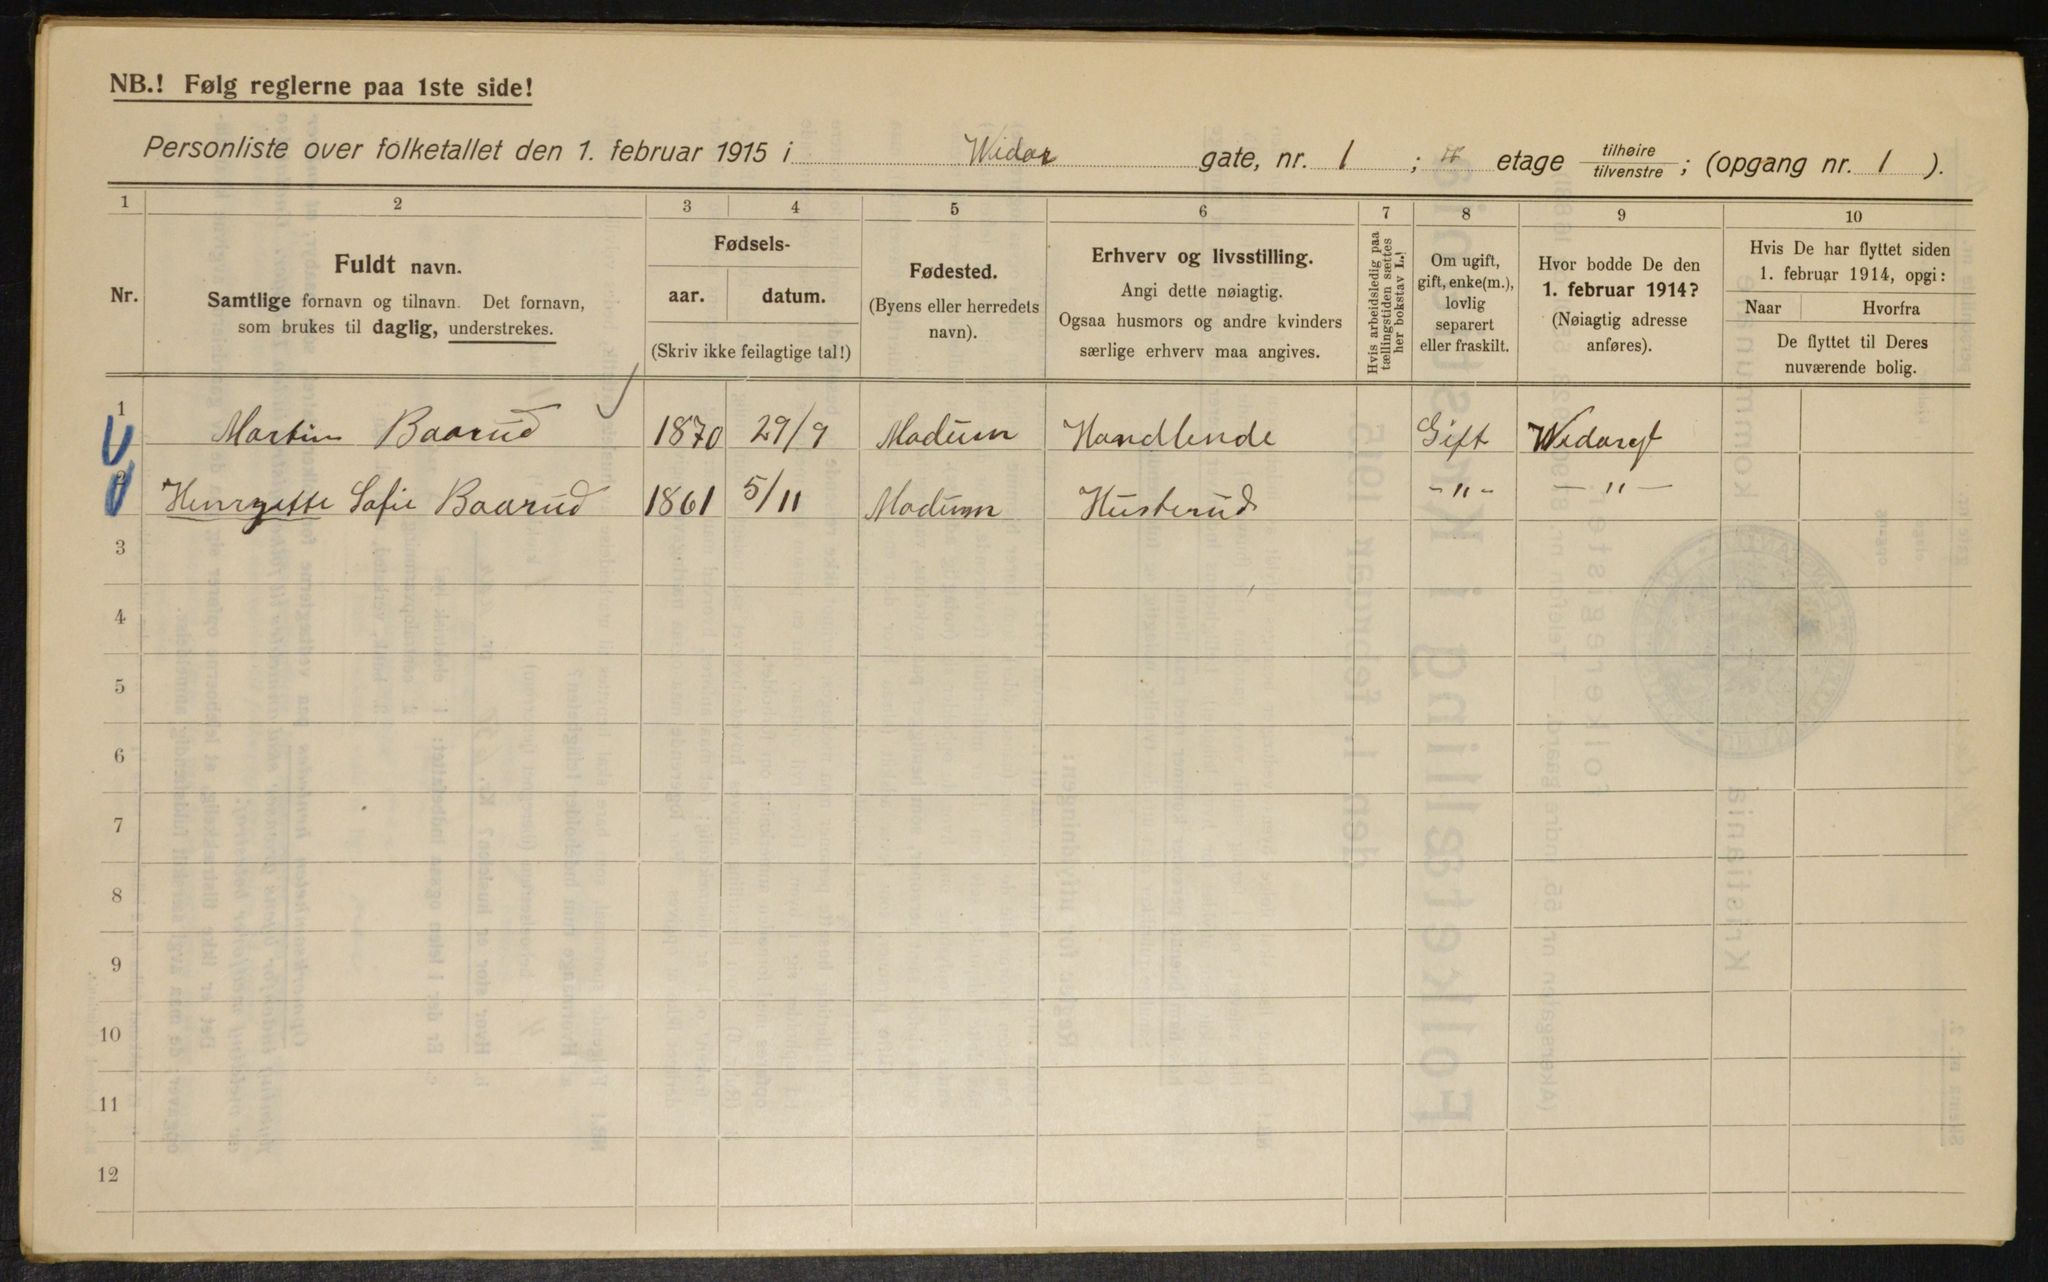 NB.! Følg reglerne paa 1ste side!
Personliste over folketallet den 1. februar 1915 i Widar gate, nr. 1 ; etage tilhøire/tilvenstre ; (opgang nr. 1 ).
1 2 3 4 5 6 7 8 9 10
Nr.
Fuldt navn.
Samtlige fornavn og tilnavn. Det fornavn,
som brukes til daglig, understrekes.
Fødsels-
aar. datum.
(Skriv ikke feilagtige tal!)
Fødested.
(Byens eller herredets
navn).
Erhverv og livsstilling.
Angi dette nøiagtig.
Ogsaa husmors og andre kvinders
særlige erhverv maa angives.
Hvis arbeidsledig paa
tællingstiden sættes
her bokstav L.!
Om ugift,
gift, enke(m.),
lovlig
separert
eller fraskilt.
Hvor bodde De den
1. februar 1914?
(Nøiagtig adresse
anføres).
Hvis De har flyttet siden
1. februar 1914, opgi:
Naar Hvorfra
De flyttet til Deres
nuværende bolig.
1 Martin Baarud 1870 29/9 Modum Handlende Gift Widargt
2 Henryette Sofie Baarud 1861 5/11 Modum Husterud - " - - " -
3
4
5
6
7
8
9
10
11
12